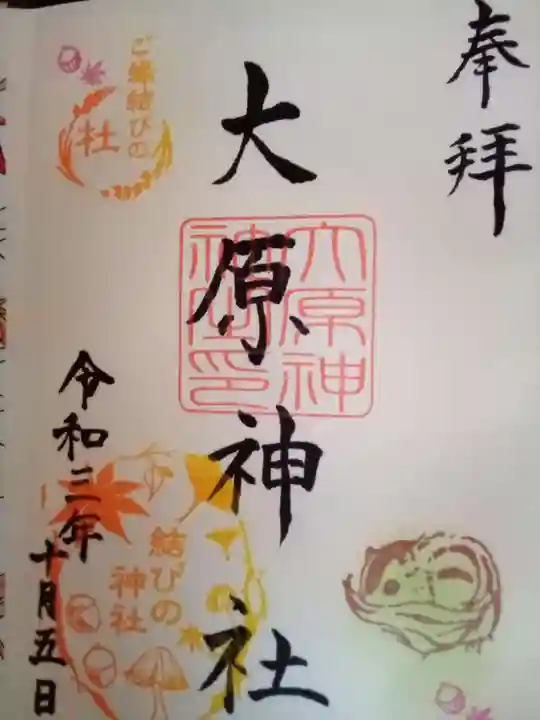 奉拝
大原神社
大原神
神社印
ご縁結びの
社
結びの
神社
令和三年
十月五日